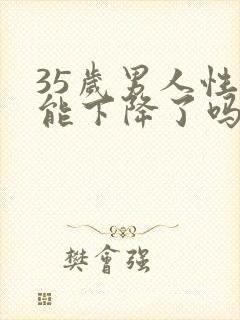 35歲男人性
能下降了吗
樊會强